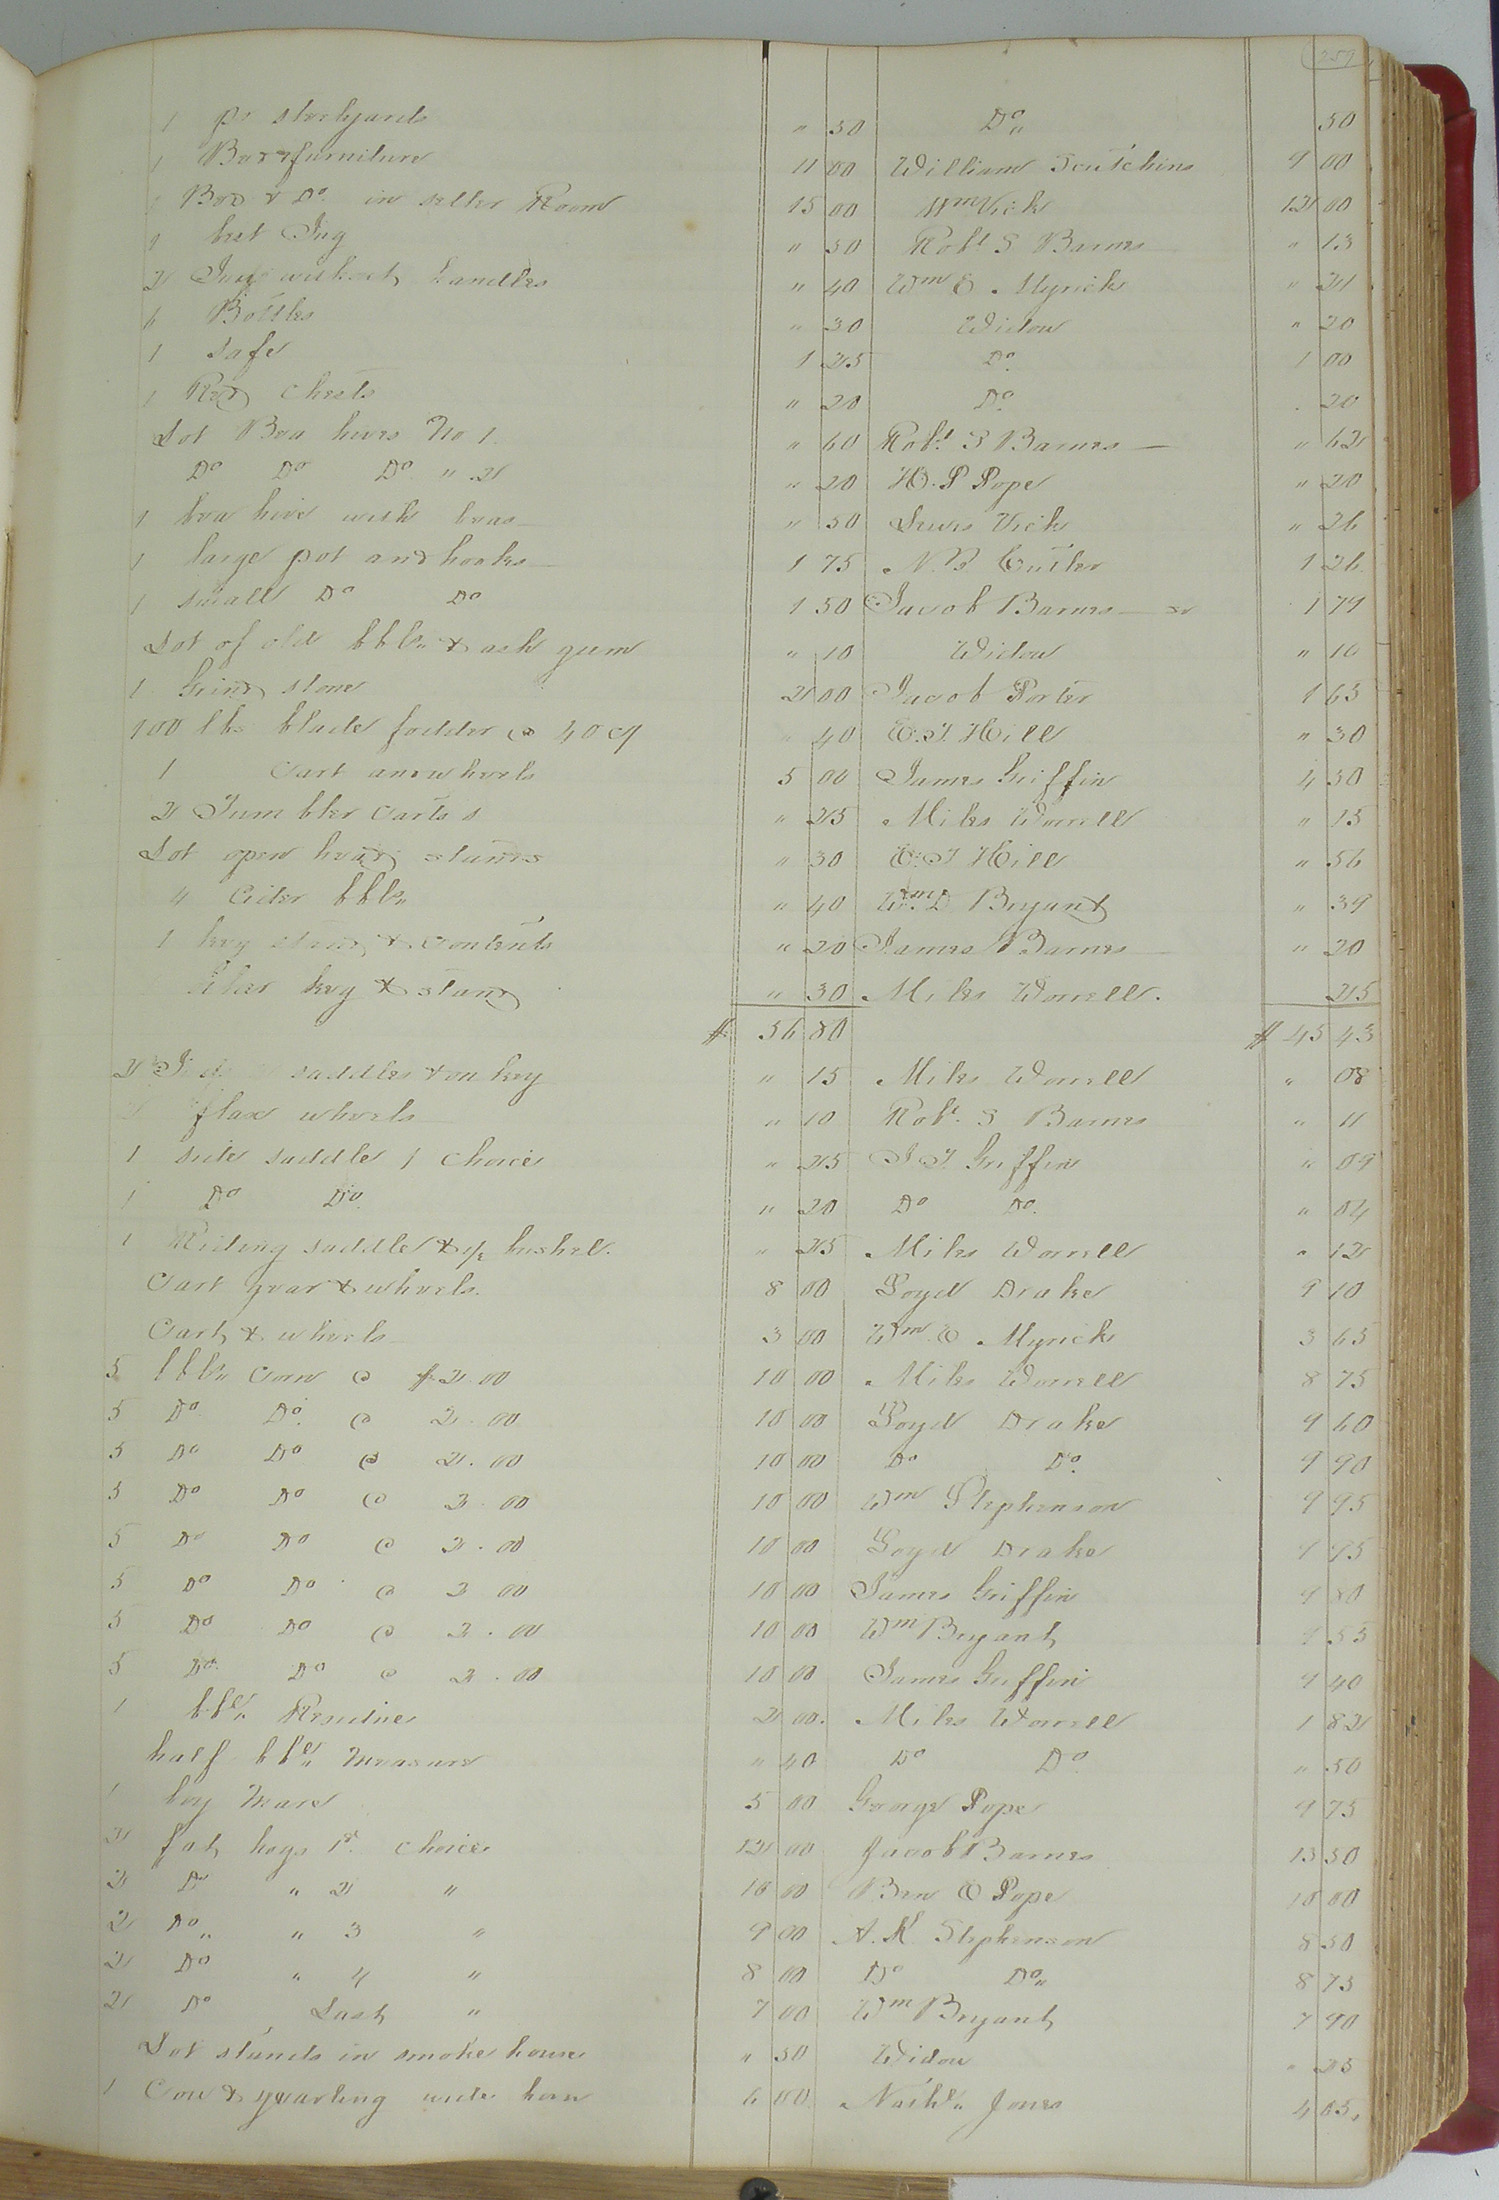 259
1 pr steelyards " 50 Do " 50
1 Bed & furniture 11 00 William Scutchins 9 00
1 Bed & Do. in seller Room 15 00 Wm Vick 12 00
1 best Jug " 50 Robt S Barnes " 13
2 Jugs without handles " 40 Wm E. Myrick " 21
6 Bottles " 30 Widow " 20
1 safe 1 25 Do. 1 00
1 Red chests " 20 Do. 20
Lot Bea hives No 1. " 60 Robt. S Barnes " 62
Do Do Do " 2 " 20 H. P Pope " 20
1 bea hive with beas " 50 Lewis Vick " 26
1 large pot and hooks 1 75 N. B Cutler 1 26
1 small Do Do 1 50 Jacob Barnes 1 79
Lot of old bbls" & ash gum " 10 Widow " 10
1 Grind stone 2 00 Jacob Porter 1 63
100 lbs blade fodder @ 40 " 40 E. T. Hill " 30
1 Cart and wheels 5 00 James Griffin 4 50
2 Tumbler Carts " 25 Miles Worrell " 15
Lot open head stands " 30 E. T Hill " 56
" Cider bbls" " 40 Wm. D Bryant " 39
1 keg stand & contents " 20 James Barnes " 20
keg & stand " 30 Miles Worrell. 25
$ 56 80 $ 45 43
2 saddles & on keg " 15 Miles Worrell " 08
2 flax wheels " 10 Robt. S Barnes " 11
1 side saddle 1 choice " 25 J T. Griffin " 09
1 Do Do. " 20 Do Do. " 04
1 Riding saddle & 1/2 bushel. " 25 Miles Worrell " 12
Cart gear & wheels. 8 00 Loyd Drake 9 10
Cart & wheels 3 00 Wm. E Myrick 3 65
5 bbls" Corn @ $2.00 10 00 Miles Worrell 8 75
5 Do Do. @ 2.00 10 00 Loyd Drake 9 60
5 Do Do @ 2.00 10 00 Do Do. 9 90
5 Do Do @ 2.00 10 00 Wm Stephenson 9 95
5 Do Do @ 2.00 10 00 Loyd Drake 9 95
5 Do Do @ 2 00 10 00 James Griffin 9 80
5 Do Do @ 2.00 10 00 Wm Bryant 9 55
5 Do. Do @ 2.00 10 00 James Griffin 9 40
1 bbl" Residue 2 00. Miles Worrell 1 82
half bbl" measure " 40 Do Do. " 50
1 bey Mare 5 00 George Pope 9 75
2 fat hogs 1st. choice 12 00 Jacob Barnes 13 50
2 Do " 2 " 10 00 Ben E Pope 10 00
2 Do " " 3 " 9 00 A. R. Stephenson 8 50
2 Do " 4 " 8 00 Do Do" 8 75
2 Do Last " 7 00 Wm Bryant 7 90
Lot stands in smoke house " 50 Widow " 25
1 Cow & yearling wide horn 6 00 Nathl" Jones 4 65.